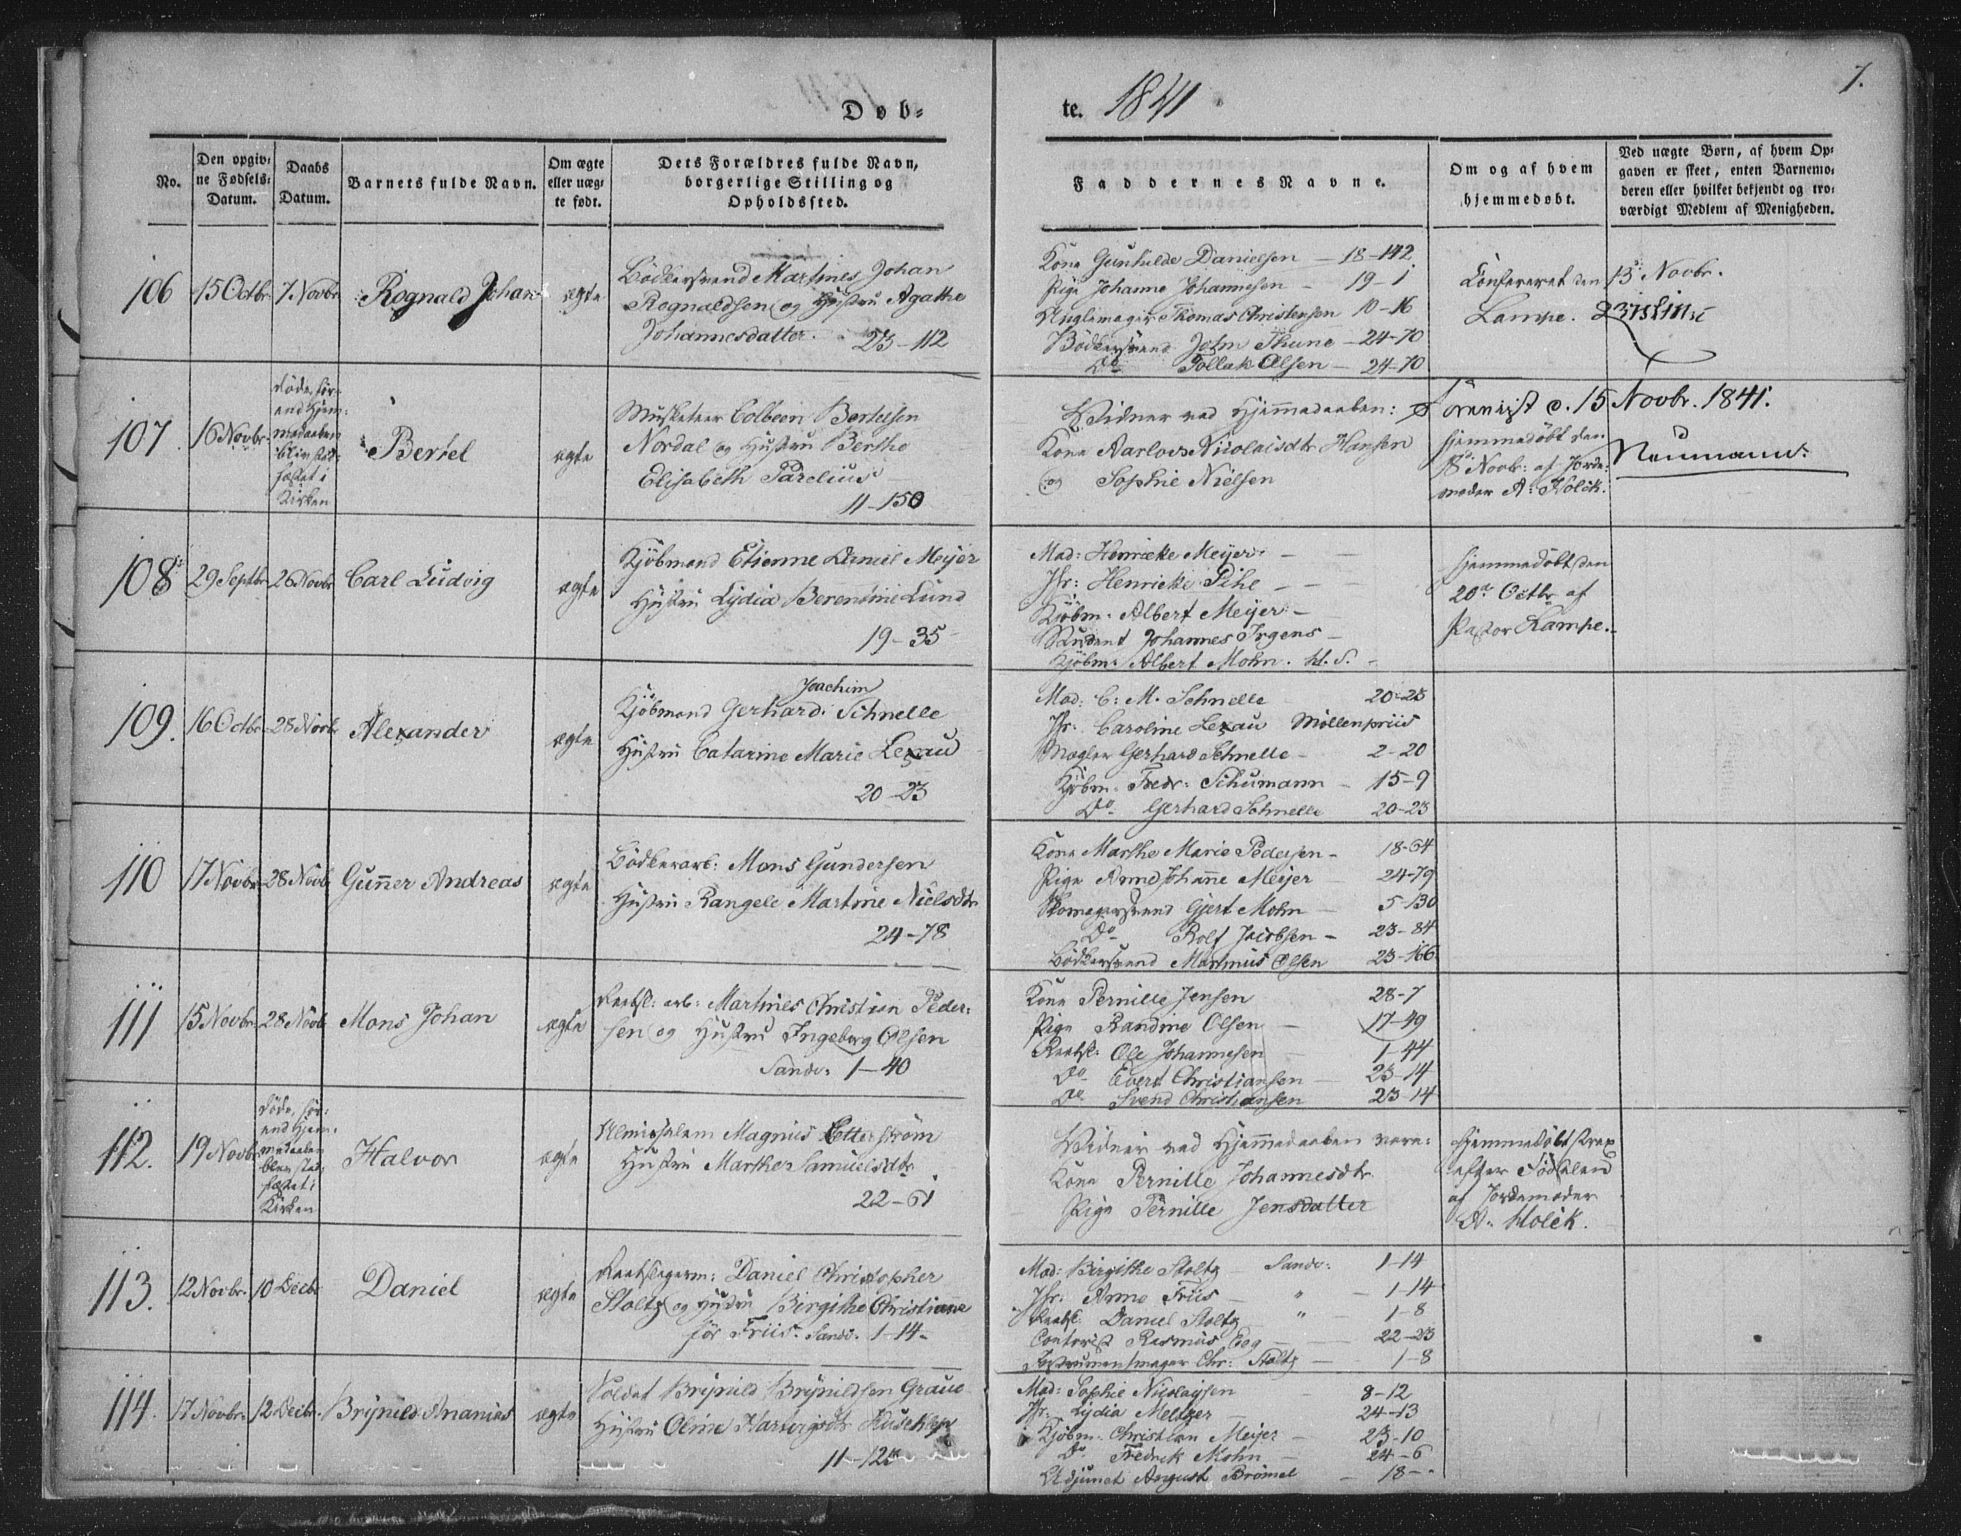 Døb-
te. 1841
7.
No.
Den opgiv-
ne Fødsels-
Datum.
Daabs
Datum.
Barnets fulde Navn.
Om ægte
eller uæg-
te født.
Dets Forældres fulde Navn,
borgerlige Stilling og
Opholdssted.
Faddernes Navne.
Om og af hvem
hjemmedøbt.
Ved uægte Børn, af hvem Op-
gaven er skeet, enten Barnemo-
deren eller hvilket bekjendt og tro-
værdigt Medlem af Menigheden.
106
15 Octbr
7 Novbr
Rognald Johan
ægte
Bødkersvend Martines Johan
Rognaldsen og Hustru Agathe
Johannesdatter. 23-112
Kone Gunhilde Danielsen - 18-142
Pige Johanne Johannesen - 19-1
Thomas Christensen 10-16
Bødkersvend John Thune - 24-70
Do Tollak Olsen - 24-70
Confereret den 15 Novbr.
Lampe.
107.
16 Novbr.
døde, før-
end Hjem-
medaaben
blev stad-
fæstet i
Kirken
Bertel
ægte
Musketeer Colbeen Bertelsen
Nordal og Hustru Berthe
Elisabeth Parelius
11-150
Vidner ved Hjemmedaaben:
Kone Nicolaisdtr Hansen
og Sophie Nielsen
hjemmedøbt den
8 Novbr: af Jorde-
moder A: Holck.
d. 15 Novbr. 1841.
Neumann.
108
29 Septbr
26 Novbr
Carl Ludvig
ægte
Kjøbmand Etienne Daniel Meyer
Hustru Lydia Berentine Lund
19-35
Mad: Henricke Meyer -
Jfr: Henricke Pihl -
Kjøbm. Albert Meyer -
Student Johannes Irgens -
Kjøbm. Albert Mohn. H. S. -
hjemmedøbt den
20de Octbr af
Pastor Lampe.
109.
16 Octbr
28 Novbr
Alexander
ægte
Joachim
Kjøbmand Gerhard Schnelle
Hustru Catarine Marie Lexau
20-23
Mad: C: M. Schnelle 20-23
Jfr. Caroline Lexau Møllenpriis
Mægler Gerhard Schnelle - 2-20
Kjøbm. Fredr: Schumann - 15-9
Do. Gerhard Schnelle 20-23
110
17 Novbr
28 Novb
Gunner Andreas
ægte
Bødkerarb: Mons Gundersen
Hustru Rangele Martine Nielsdtr
24-78
Kone Marthe Marie Pedersen - 18-64
Pige Anne Johanne Meyer - 24-79
Skomagersvend Gjert Mohn - 5-130
Do Rolf Jacobsen - 23-84
Bødkersvend Martinus Olsen 23-166
111
15 Novbr
28 Novb
Mons Johan
ægte
Reebsl: arb: Martines Christian Peder-
sen og Hustru Ingeborg Olsen
Sandv. 1-40
Kone Pernille Jensen 28-7
Pige Randine Olsen - 17-49
Reebsl: Ole Johannesen - 1-44
Do Evert Christiansen - 23-14
Do Svend Christiansen 23-14
112.
19 Novbr
døde, før-
end Hjem-
medaaben
blev stad-
fæstet i
Kirken
Halvor
ægte
Magnus Etterstrøm
Hustru Marthe Samuelsdtr
22-61
Vidner ved Hjemmedaaben vare:
Kone Pernille Johannesdtr
Pige Pernille Jensdatter
hjemmedøbt strax
efter Fødselen
af Jordemoder
A. Holck.
113.
12 Novbr.
10 Decbr
Daniel
ægte
Reebslagerm: Daniel Christopher
Stoltz og Hustru Birgithe Christianne
før Friis. Sandv. 1-14.
Mad: Birgithe Stoltz Sandv: 1-14
Jfr: Anne Friis - " - 1-14
Reebsl: Daniel Stoltz " - 1-8
Contorist Rasmus - 22-23
Instrumentmager Chr: Stoltz - 1-8
114.
17 Novbr
12 Decbr.
Brynild Ananias
ægte
Soldat Brynild Brynildsen Graue
Hustru Oline
11-12
Mad: Sophie Nicolaysen 8-12
Jfr. Lydia Meltzer 24-13
Kjøbm. Christian Meyer - 23-10
Do Fredrik Mohn - 24-6
Adjunct August Brømel - 18-